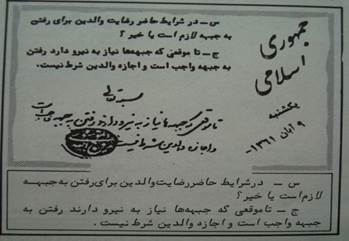 جمهوری
اسلامی
یکشنبه
۹ آبان ۱۳۶۱-
س ـ در شرایط حاضر رضایت والدین برای رفتن
به جبهه لازم است یا خیر ؟
ج ـ تا موقعی که جبهه‌ها نیاز به نیرو دارد رفتن
به جبهه واجب است و اجازه والدین شرط نیست.
بسمه تعالی
تا موقعی که جبهه‌ها نیاز به نیرو دارد رفتن به جبهه واجب است
و اجازه والدین شرط نیست
س ـ در شرایط حاضر رضایت والدین برای رفتن به جبهه
لازم است یا خیر؟
ج ـ تا موقعی که جبهه‌ها نیاز به نیرو دارند رفتن به
جبهه واجب است و اجازه والدین شرط نیست.